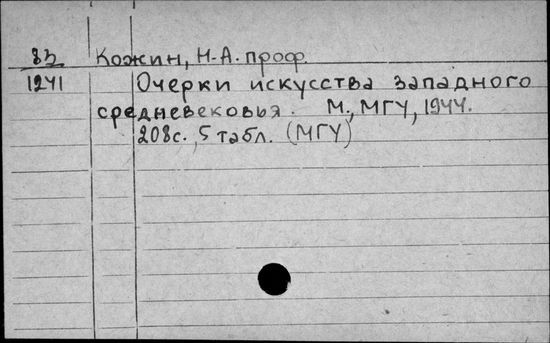 83 Кожин, Н.А. проф.
1241 Очерки искусства западного
средневековья. М., МГУ, 1944.
208с., 5 табл. (МГУ)